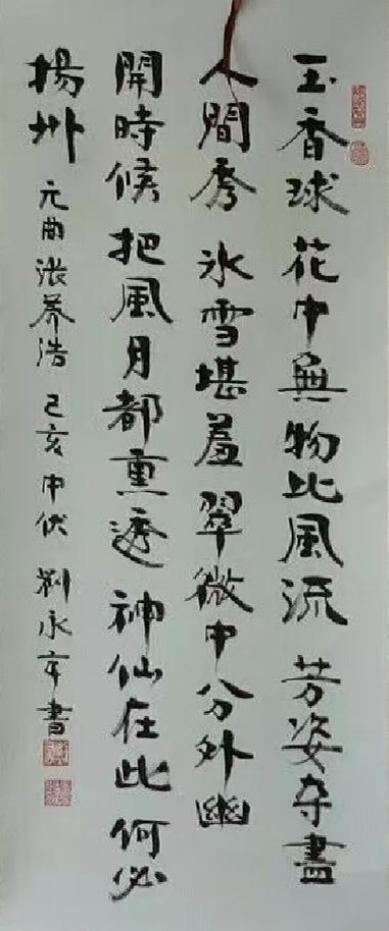 玉香球花中無物比風流芳姿夺盡
人間秀氷雪堪羞翠微中分外幽
開時候把風月都熏透神仙在此何必
揚州元曲張养浩己亥中伏劉永亭書